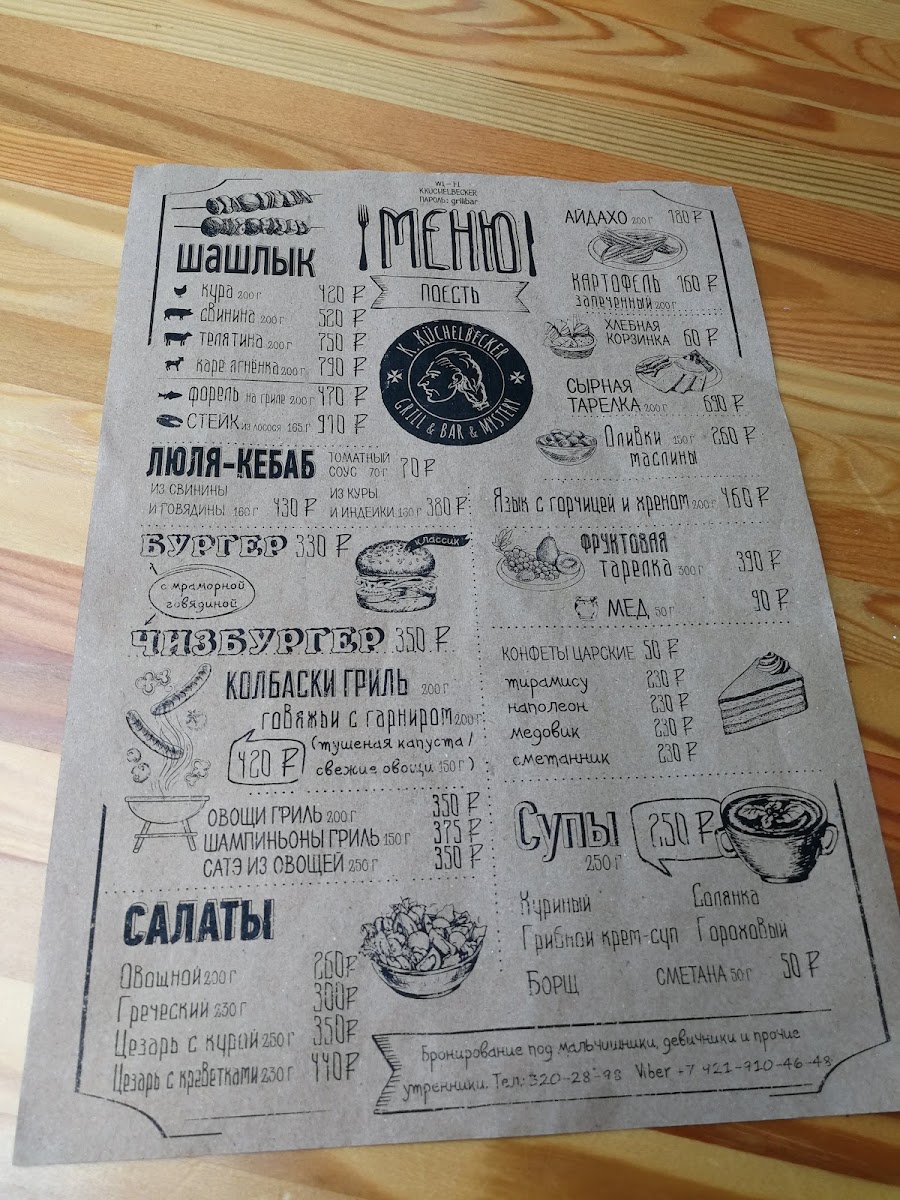 WI-FI
K.KUCHELBECKER
ПАРОЛЬ: grillbar
МЕНЮ
ПОЕСТЬ
K. KÜCHELBECKER
GRILL & BAR & MYSTERY
ШАШЛЫК
кура 200 г 420 ₽
свинина 200 г 520 ₽
телятина 200 г 750 ₽
каре ягнёнка 200 г 790 ₽
форель на гриле 200 г 470 ₽
СТЕЙК из лосося 165 г 910 ₽
ЛЮЛЯ-КЕБАБ
ТОМАТНЫЙ
СОУС 70 г 70 ₽
ИЗ СВИНИНЫ
И ГОВЯДИНЫ 160 г 430 ₽
ИЗ КУРЫ
И ИНДЕЙКИ 160 г 380 ₽
БУРГЕР 330 ₽
классик
с мраморной
говядиной
ЧИЗБУРГЕР 350 ₽
КОЛБАСКИ ГРИЛЬ 200 г
говяжьи с гарниром 200 г
420 ₽
(тушеная капуста /
свежие овощи 150 г)
ОВОЩИ ГРИЛЬ 200 г 350 ₽
ШАМПИНЬОНЫ ГРИЛЬ 150 г 375 ₽
САТЭ ИЗ ОВОЩЕЙ 250 г 350 ₽
САЛАТЫ
Овощной 230 г 260 ₽
Греческий 230 г 300 ₽
Цезарь с курой 250 г 350 ₽
Цезарь с креветками 230 г 440 ₽
АЙДАХО 200 г 180 ₽
КАРТОФЕЛЬ 160 ₽
запеченный 200 г
ХЛЕБНАЯ
КОРЗИНКА 60 ₽
СЫРНАЯ
ТАРЕЛКА 200 г 690 ₽
Оливки 150 г 260 ₽
маслины
Язык с горчицей и хреном 200 г 460 ₽
ФРУКТОВАЯ
тарелка 300 г 390 ₽
МЕД 50 г 90 ₽
КОНФЕТЫ ЦАРСКИЕ 50 ₽
тирамису 230 ₽
наполеон 230 ₽
медовик 230 ₽
сметанник 230 ₽
Супы 250 ₽
250 г
Куриный Солянка
Грибной крем-суп Гороховый
Борщ СМЕТАНА 50 г 50 ₽
Бронирование под мальчишники, девичники и прочие
утренники. Тел: 320-28-98 Viber +7 921-910-46-48